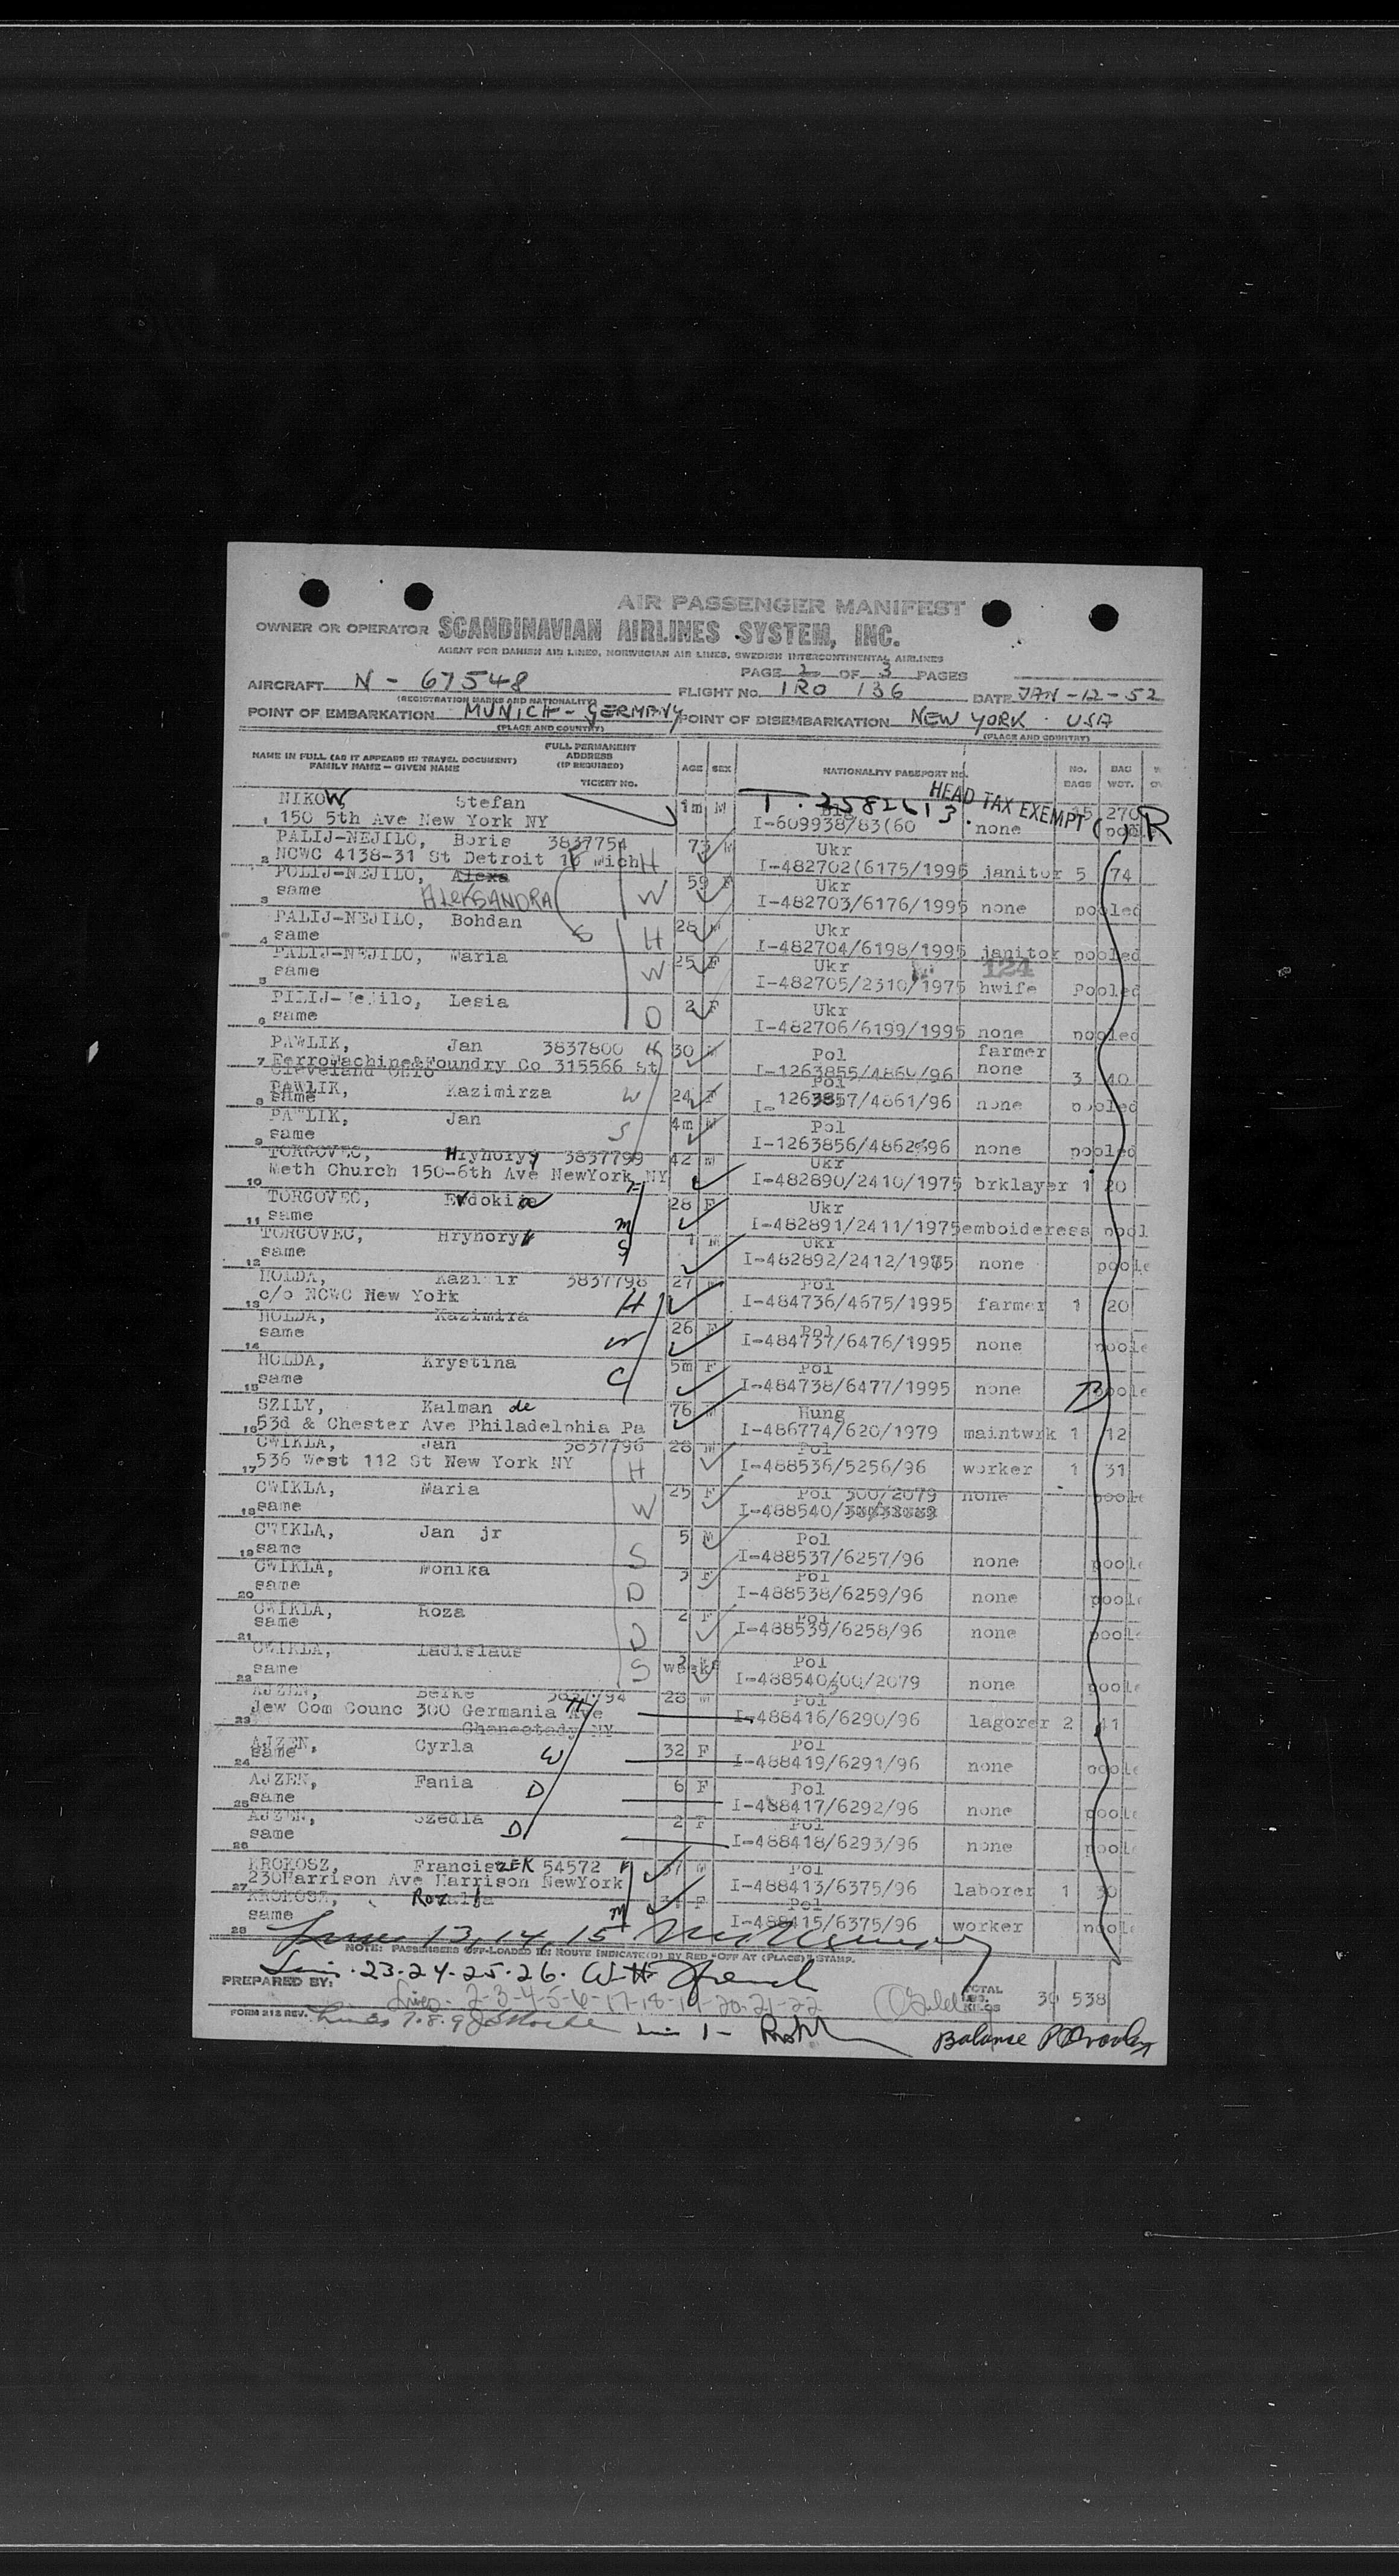 AIR PASSENGER MANIFEST
OWNER OR OPERATOR SCANDINAVIAN AIRLINES SYSTEM, INC.
AGENT FOR DANISH AIR LINES, NORWEGIAN AIR LINES, SWEDISH INTERCONTINENTAL AIRLINES
PAGE 2 OF 3 PAGES
AIRCRAFT N - 67548 FLIGHT NO. IRO 136 DATE JAN-12-52
(REGISTRATION MARKS AND NATIONALITY)
POINT OF EMBARKATION MUNICH - GERMANY POINT OF DISEMBARKATION NEW YORK . USA
(PLACE AND COUNTRY) (PLACE AND COUNTRY)
NAME IN FULL (AS IT APPEARS IN TRAVEL DOCUMENT) FAMILY NAME - GIVEN NAME FULL PERMANENT ADDRESS (IF REQUIRED) TICKET NO. AGE SEX NATIONALITY PASSPORT NO. NO. BAGS BAG WGT.
NIKOW, Stefan 1m M T. 2582613. HEAD TAX EXEMPT 270 R
1 150 5th Ave New York NY I-609938/83(60 none
PALIJ-NEJILO, Boris 3837754 73 M Ukr
2 NCWC 4138-31 St Detroit 16 Mich H I-482702(6175/1995 janitor 5 74
POLIJ-NEJILO, Alexa 59 F Ukr
3 same ALEKSANDRA W I-482703/6176/1995 none pooled
PALIJ-NEJILO, Bohdan 28 M Ukr
4 same S H I-482704/6198/1995 janitor pooled
PALIJ-NEJILO, Maria 25 F Ukr 124
5 same W I-482705/2310/1975 hwife Pooled
PILIJ-Nejilo, Lesia 2 F Ukr
6 same D I-482706/6199/1995 none pooled
PAWLIK, Jan 3837800 H 30 M Pol farmer
7 FerroMachine&Foundry Co 315566 St I-1263855/4860/96 none 3 40
Cleveland Ohio
PAWLIK, Kazimirza W 24 F Pol
8 same I-1263857/4861/96 none pooled
PAWLIK, Jan 4m M Pol
9 same S I-1263856/4862/96 none pooled
TORGOVEC, Hryhory 3837799 42 M Ukr
10 Meth Church 150-6th Ave NewYork NY F I-482890/2410/1975 brklayer 1 20
TORGOVEC, Evdokia 28 F Ukr
11 same M I-482891/2411/1975 emboideress pool
TORGOVEC, Hryhory 1 M Ukr
12 same S I-482892/2412/1975 none poole
HOLDA, Kazimir 3837798 27 M Pol
13 c/o NCWC New York H I-484736/4675/1995 farmer 1 20
HOLDA, Kazimira 26 F Pol
14 same W I-484737/6476/1995 none poole
HOLDA, Krystina 5m F Pol
15 same C I-484738/6477/1995 none poole
SZILY, Kalman de 76 M Hung
16 53d & Chester Ave Philadelphia Pa I-486774/620/1979 maintwrk 1 12
CWIKLA, Jan 3837796 28 M Pol
17 536 West 112 St New York NY H I-488536/5256/96 worker 1 31
CWIKLA, Maria 25 F Pol 300/2079 none poole
18 same W I-488540/
CWIKLA, Jan jr 5 M Pol
19 same S I-488537/6257/96 none poole
CWIKLA, Monika 3 F Pol
20 same D I-488538/6259/96 none poole
CWIKLA, Roza 2 F Pol
21 same D I-488539/6258/96 none poole
CWIKLA, Ladislaus Pol
22 same S weeks I-488540/300/2079 none poole
AJZEN, Berke 3837794 28 M Pol
23 Jew Com Counc 300 Germania Ave H I-488416/6290/96 lagorer 2 41
Chanectady NY
AJZEN, Cyrla 32 F Pol
24 same W I-488419/6291/96 none poole
AJZEN, Fania 6 F Pol
25 same D I-488417/6292/96 none poole
AJZEN, Szedla 2 F Pol
26 same D I-488418/6293/96 none poole
KROKOSZ, FranciszEK 54572 F 37 M Pol
27 230Harrison Ave Harrison NewYork I-488413/6375/96 laborer 1 30
KROKOSZ, F Pol
28 same M I-488415/6375/96 worker poole
Lines 13, 14, 15
NOTE: PASSENGERS OFF-LOADED EN ROUTE INDICATE(D) BY RED "OFF AT (PLACE)" STAMP.
PREPARED BY: Lines 23-24-25-26.
Lines 2-3-4-5-6-17-18-19-20-21-22 TOTAL LBS. KILOS 30 538
FORM 212 REV. Lines 7.8.9 Line 1 - Balance